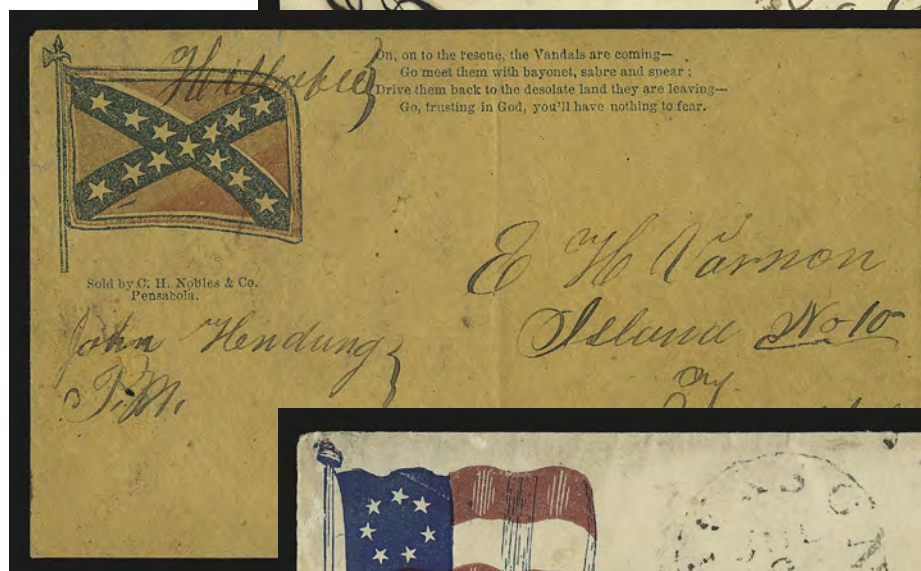 Hillabee
On, on to the rescue, the Vandals are coming—
Go meet them with bayonet, sabre and spear ;
Drive them back to the desolate land they are leaving—
Go, trusting in God, you'll have nothing to fear.
Sold by C. H. Nobles & Co.
Pensacola.
E H Varnon
Island No 10
John Hendung
P.M.